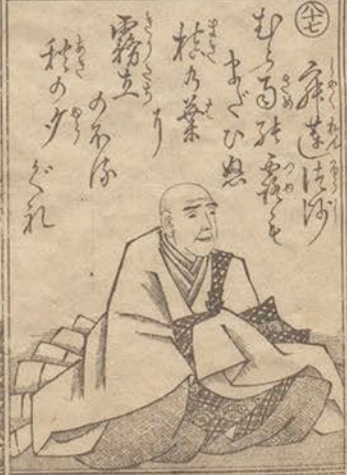 八十七
寂蓮法師
むら雨の露も
まだひぬ
槙の葉に
霧立
のぼる
秋の夕ぐれ